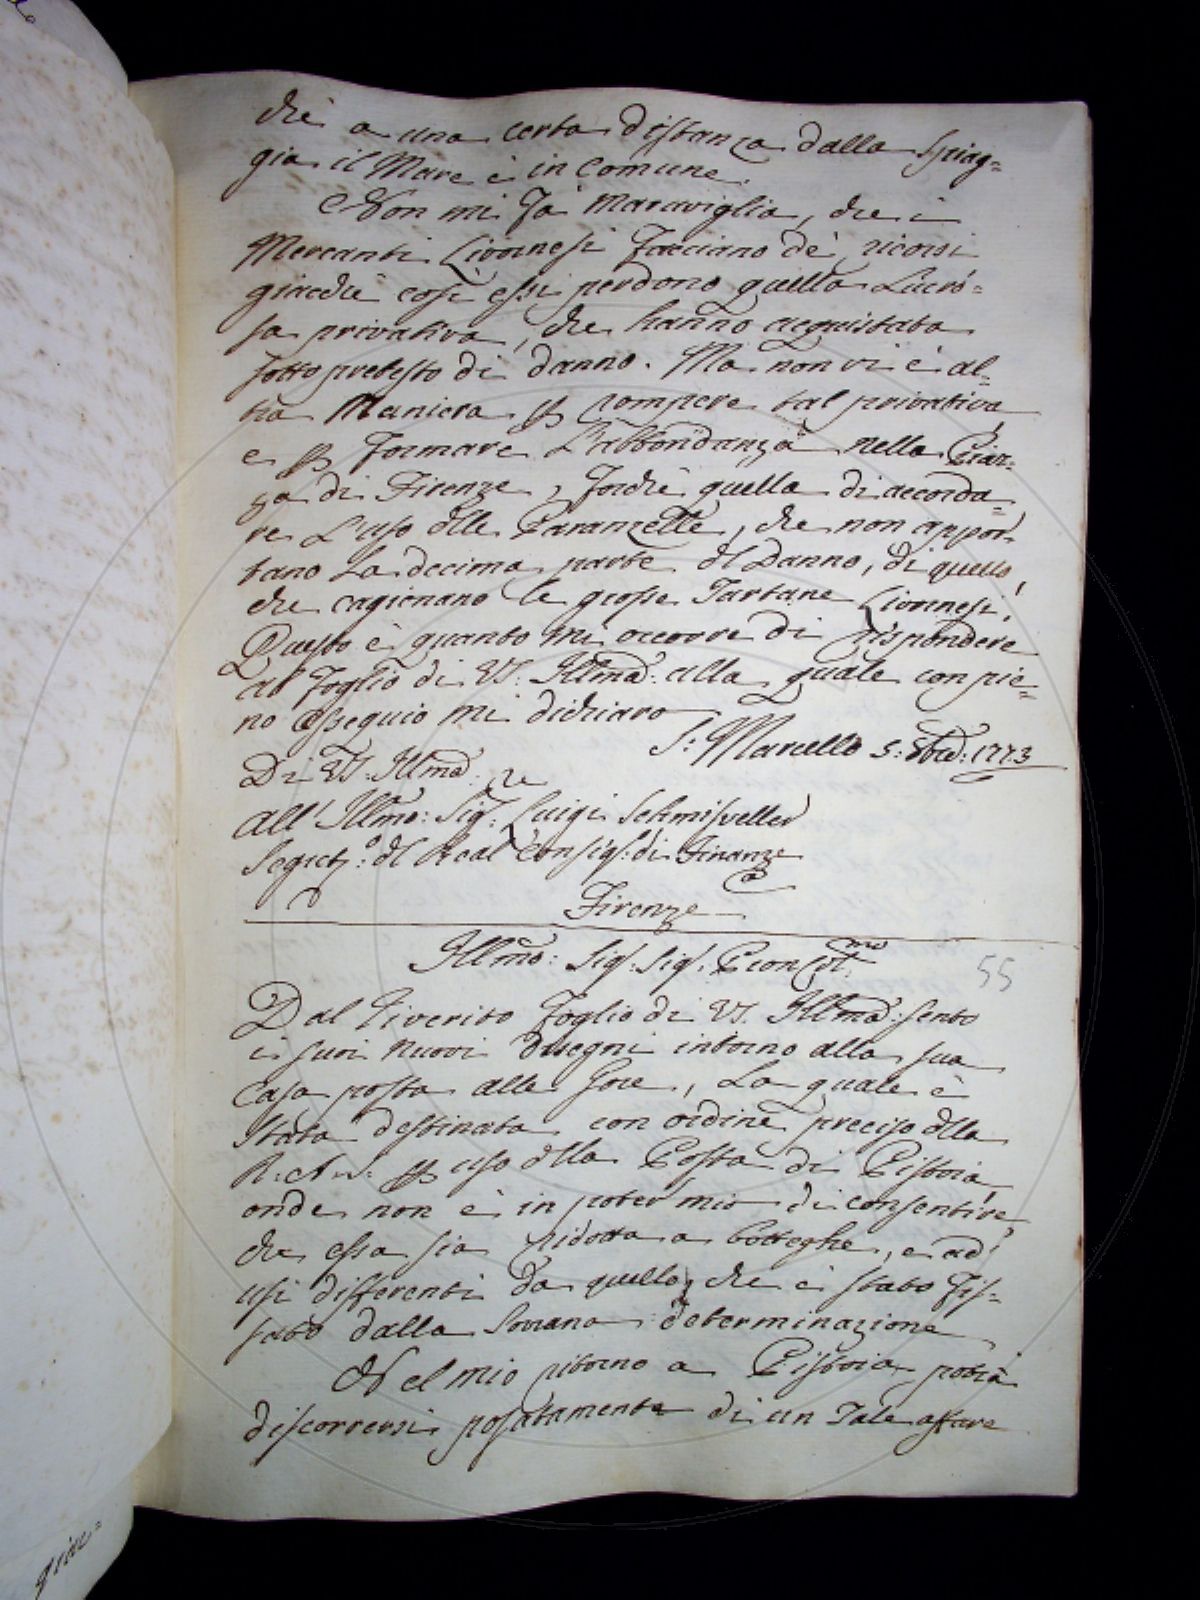 chè a una certa distanza dalla spiag=
gia il Mare è in Comune.
Non mi fà Maraviglia, che i
Mercanti Livornesi facciano de' ricorsi
giacchè così essi perdono quella Lucro=
sa privativa, che hanno acquistata
sotto pretesto di danno. Ma non vi è al=
tra Maniera p rompere tal privativa
e p formare L'abbondanza nella Piaz=
za di Firenze, forchè quella di accorda=
re L'uso dlle Paranzelle, che non appor=
tano La decima parte dl Danno, di quello,
che cagionano le grosse Tartane Livornesi.
Questo è quanto mi occorre di rispondere
al foglio di VS: Illma: alla quale con pie=
no ossequio mi dichiaro
S: Marcello 5: 8bre: 1773
Di VS: Illma
All' Illmo: Sigre: Luigi Schmisveller
Segret: dl Real Consigl: di Finanze
Firenze
Illmo: Sig: Sig: Pron Colmo
55
Dal riverito foglio di VS. Illma: sento
i suoi nuovi disegni intorno alla sua
Casa posta alle Gore, La quale è
Stata destinata con ordine preciso dlla
R: A: p uso dlla Posta di Pistoia,
onde non è in poter mio di consentire,
che essa sia ridotta a botteghe, e ad
usi differenti da quello, che è stato fis=
sato dalla Sovrana determinazione
Nel mio ritorno a Pistoia potrà
discorrersi posatamente di un Tale affare
giac=